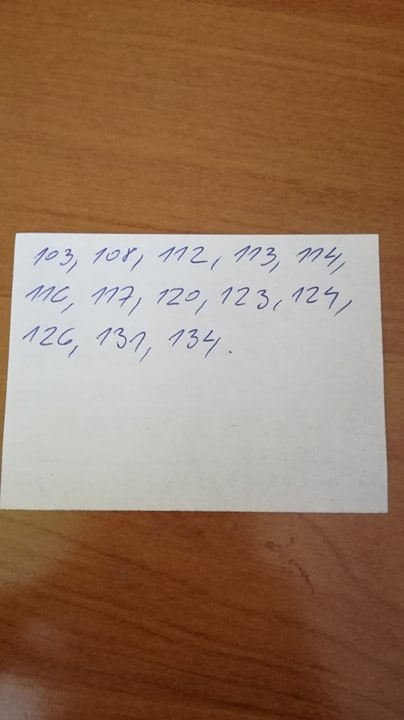 103, 108, 112, 113, 114,
116, 117, 120, 123, 124,
126, 131, 134.